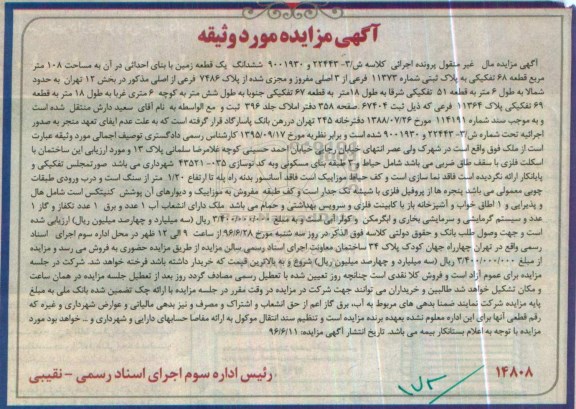 آگهی مزایده مورد وثیقه
آگهی مزایده مال غیر منقول پرونده اجرائی کلاسه ش/۳-۲۲۴۴۳ و ۹۰۰۱۹۳۰ ششدانگ یک قطعه زمین با بنای احداثی در آن به مساحت ۱۰۸ متر
مربع قطعه ۶۸ تفکیکی به پلاک ثبتی شماره ۱۱۳۷۳ فرعی از ۳ اصلی مفروز و مجزی شده از پلاک ۷۴۸۶ فرعی از اصلی مذکور در بخش ۱۲ تهران به حدود
شمالا به طول ۶ متر به قطعه ۵۱ تفکیکی شرقا به طول ۱۸متر به قطعه ۶۷ تفکیکی جنوبا به طول شش متر به کوچه ۶ متری غربا به طول ۱۸ متر به قطعه
۶۹ تفکیکی پلاک ۱۱۳۶۴ فرعی که ذیل ثبت ۶۷۴۰۴ صفحه ۳۵۸ دفتر املاک جلد ۳۹۶ ثبت و مع الواسطه به نام آقای سعید دارش منتقل شده است
و به موجب سند شماره ۱۱۴۱۹۱ مورخ ۱۳۸۸/۰۷/۲۶ دفترخانه ۲۴۵ تهران دررهن بانک پاسارگاد قرار گرفته است که به علت عدم ایفای تعهد منجر به صدور
اجرائیه تحت شماره ش/۳-۲۲۴۴۳ و ۹۰۰۱۹۳۰ شده است و برابر نظریه مورخ ۱۳۹۵/۰۹/۱۷ کارشناس رسمی دادگستری توصیف اجمالی مورد وثیقه عبارت
است از ملک فوق واقع است در شهرک ولی عصر انتهای خیابان رجایی خیابان احمد حسینی کوچه غلامرضا سلمانی پلاک ۱۳ و مورد ارزیابی این ساختمان با
اسکلت فلزی با سقف طاق ضربی می باشد شامل حیاط و ۳ طبقه بنای مسکونی وبه کد نوسازی ۰۳۵-۴۳۵۲۱ شهرداری می باشد صورتمجلس تفکیکی و
پایانکار ارائه نگردیده است فاقد نما سازی است و کف حیاط موزاییک است فاقد آسانسور بدنه راه پله تا ارتفاع ۱/۲۰ متر از سنگ است و درب ورودی طبقات
چوبی معمولی می باشد پنجره ها از پروفیل فلزی با شیشه تک جدار است و کف طبقه مفروش به موزاییک و دیوارهای آن پوشش کنیتکس است شامل هال
و پذیرایی و ۱ اطاق خواب و آشپزخانه باز با کابینت فلزی و سرویس بهداشتی و حمام می باشد ملک دارای انشعاب آب ۱ عدد و برق ۱ عدد تکفاز و گاز ۱
عدد و سیستم گرمایشی و سرمایشی بخاری و آبگرمکن و کولر آبی است و به مبلغ ۳/۴۰۰/۰۰۰/۰۰۰ ریال (سه میلیارد و چهارصد میلیون ریال) ارزیابی شده
است و جهت وصول طلب بانک و حقوق دولتی کلاسه فوق الذکر در روز سه شنبه مورخ ۹۶/۶/۲۸ از ساعت ۹ الی ۱۲ ظهر در محل اداره سوم اجرای اسناد
رسمی واقع در تهران چهارراه جهان کودک پلاک ۳۴ ساختمان معاونت اجرای اسناد رسمی سالن مزایده از طریق مزایده حضوری به فروش می رسد و مزایده
از مبلغ ۳/۴۰۰/۰۰۰/۰۰۰ ریال (سه میلیارد و چهارصد میلیون ریال) شروع و به بالاترین قیمت که خریدار داشته باشد فروخته خواهد شد. شرکت در جلسه
مزایده برای عموم آزاد است و فروش کلا نقدی است چنانچه روز تعیین شده با تعطیل رسمی مصادف گردد روز بعد از تعطیل جلسه مزایده در همان ساعت
و مکان تشکیل خواهد شد طالبین و خریداران می توانند جهت شرکت در مزایده در وقت مقرر در جلسه مزایده با ارائه چک تضمین شده بانک ملی به مبلغ
پایه مزایده شرکت نمایند ضمنا بدهی های مربوط به آب، برق گاز اعم از حق انشعاب و اشتراک و مصرف و نیز بدهی مالیاتی و عوارض شهرداری و غیره که
رقم قطعی آنها برای این اداره معلوم نشده بعهده برنده مزایده است و تنظیم سند انتقال موکول به ارائه مفاصا حسابهای دارایی و شهرداری و ... خواهد بود مورد
مزایده با توجه به اعلام بستانکار بیمه می باشد. تاریخ انتشار آگهی مزایده: ۹۶/۶/۱۱
۱۴۸۰۸
رئیس اداره سوم اجرای اسناد رسمی - نقیبی